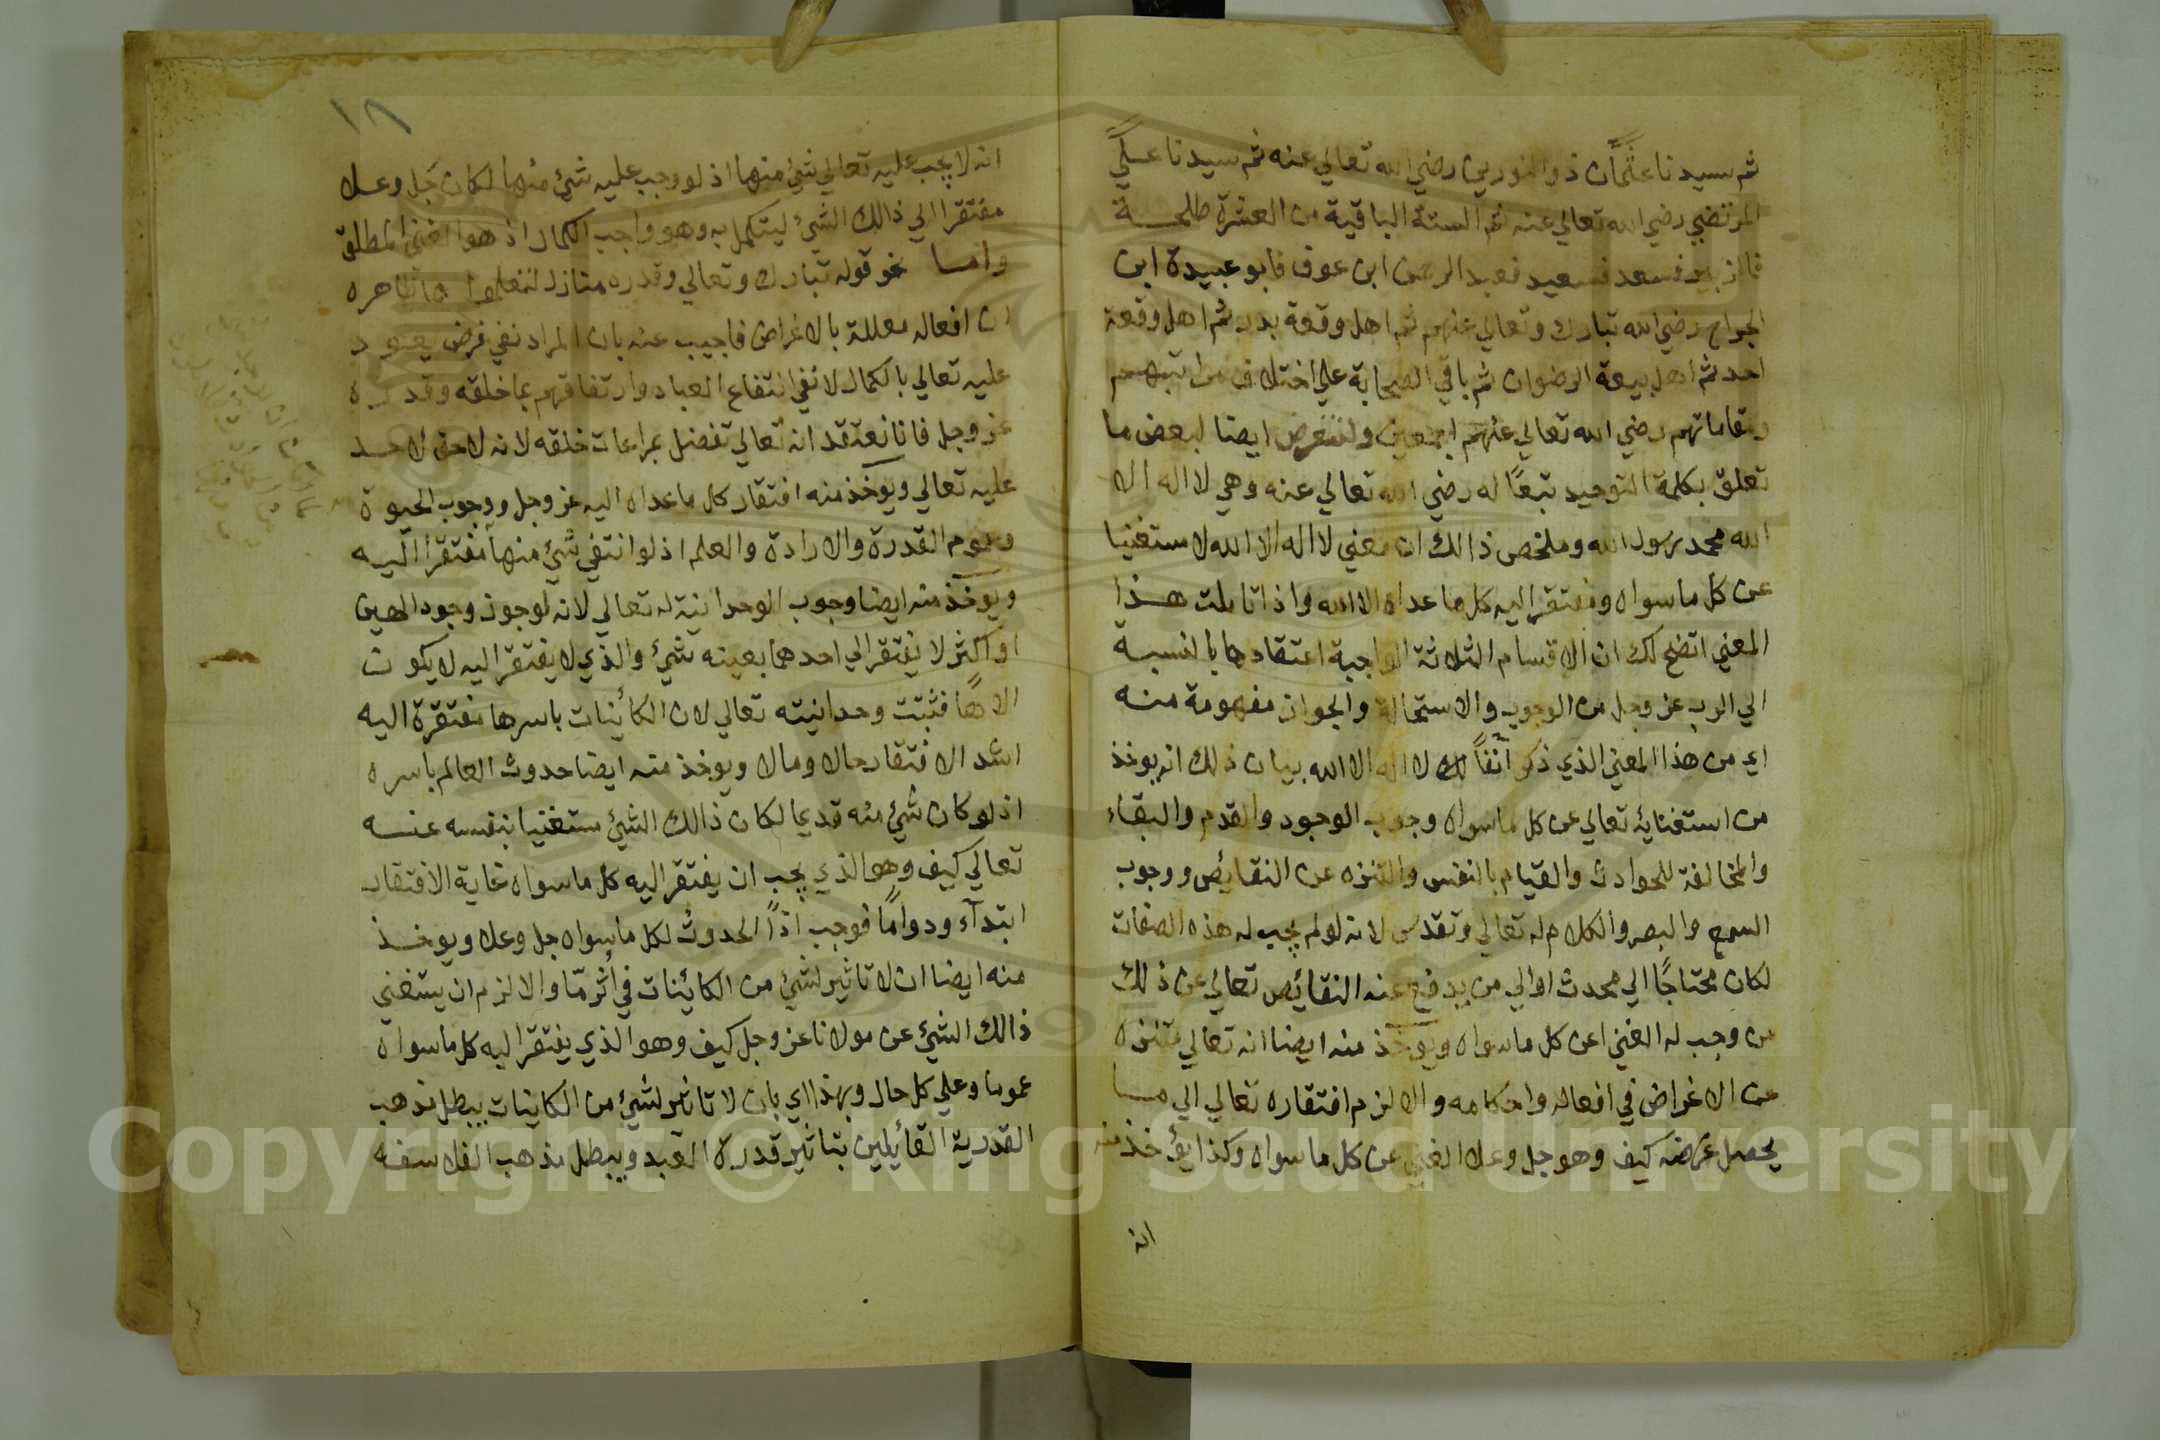 ثم سيدنا عثمان ذو النورين رضي الله تعالي عنه ثم سيدنا علي
المرتضي رضي الله تعالي عنه ثم الستة الباقية من العشرة طلحة
فالزبير فسعد فسعيد فعبد الرحمن ابن عوف فابو عبيدة ابن
الجراح رضي الله تبارك وتعالي عنهم ثم اهل وقعة بدر ثم اهل وقعة
احد ثم اهل بيعة الرضوان ثم باقي الصحابة علي اختلاف مراتبهم
ومقاماتهم رضي الله تعالي عنهم اجمعين ولنتعرض ايضا لبعض ما
تعلق بكلمة التوحيد تبعًا له رضي الله تعالي عنه وهي لا اله الا
الله محمد رسول الله وملخص ذالك ان معني لا اله الا الله لا مستغنيا
عن كل ما سواه ومفتقرا اليه كل ما عداه الا الله واذا تاملت هذا
المعني اتضح لك ان الاقسام الثلاثة الواجبة اعتقادها بالنسبة
الي الرب عز وجل من الوجوب والاستحالة والجواز مفهومة منه
اي من هذا المعني الذي ذكر آنفًا لك لا اله الا الله بيان ذلك انه يوخذ
من استغنايه تعالي عن كل ما سواه وجوب الوجود والقدم والبقاء
والمخالفة للحوادث والقيام بالنفس والتنزه عن النقائص ووجوب
السمع والبصر والكلام له تعالي وتقدس لانه لو لم يجب له هذه الصفات
لكان محتاجًا الي محدث او الي من يدفع عنه النقائص تعالي عن ذلك
من وجب له الغني عن كل ما سواه ويوخذ منه ايضا انه تعالي متنزه
عن الاغراض في افعاله واحكامه والا لزم افتقاره تعالي الي ما
يحصل غرضه كيف وهو جل وعلا الغني عن كل ما سواه وكذا يؤخذ منه
انه
١٨
انه لا يجب عليه تعالي شئ منها اذ لو وجب عليه شئ منها لكان جل وعلا
مفتقرا الي ذالك الشئ ليتكمل به وهو واجب الكمال اذ هو الغني المطلق
واما نحو قوله تبارك وتعالي وقدره منازل لتعلموا مما ظاهره
ان افعاله معللة بالاغراض فاجيب عنه بان المراد نفي غرض يعود
عليه تعالي بالكمال لا نفي انتفاع العباد وارتفاقهم بما خلقه وقدره
عز وجل فانا نعتقد انه تعالي تفضل بمراعات خلقه لانه لا حق لاحد
عليه تعالي ويوخذ منه افتقار كل ما عداه اليه عز وجل ووجوب الحيوة
وعموم القدرة والارادة والعلم اذ لو انتفي شئ منها مفتقرا اليه
ويوخذ منه ايضا وجوب الوحدانية له تعالي لانه لو جوز وجود الهين
او اكثر لا يفتقر الي احدهما بعينه شئ والذي لا يفتقر اليه لا يكون
الاهًا فثبتت وحدانيته تعالي لان الكائنات باسرها مفتقرة اليه
اشد الافتقار حالا ومالا ويوخذ منه ايضا حدوث العالم باسره
اذ لو كان شئ منه قديما لكان ذالك الشئ مستغنيا بنفسه عنه
تعالي كيف وهو الذي يجب ان يفتقر اليه كل ما سواه غاية الافتقار
ابتدآء ودوامًا فوجب اذًا الحدوث لكل ما سواه جل وعلا ويوخذ
منه ايضا ان لا تاثير لشئ من الكائنات في أثر مّا والا لزم ان يستغني
ذالك الشئ عن مولانا عز وجل كيف وهو الذي يفتقر اليه كل ما سواه
عموما وعلي كل حال وبهذا اي بان لا تاثير لشئ من الكاينات يبطل مذهب
القدرية القائلين بتاثير قدرة العبد ويبطل مذهب الفلاسفة
Copyright © King Saud University